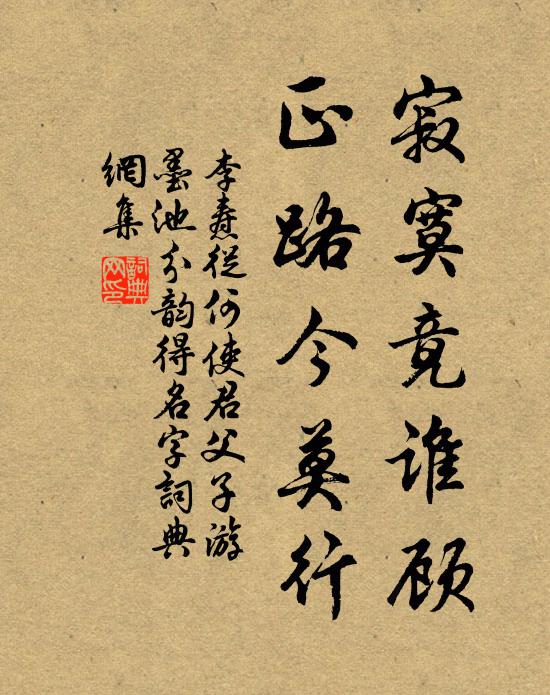 寂寞竟谁顾
正路今莫行
李焘从何使君父子游
墨池分韵得名字詞典
網集
詞典
网印